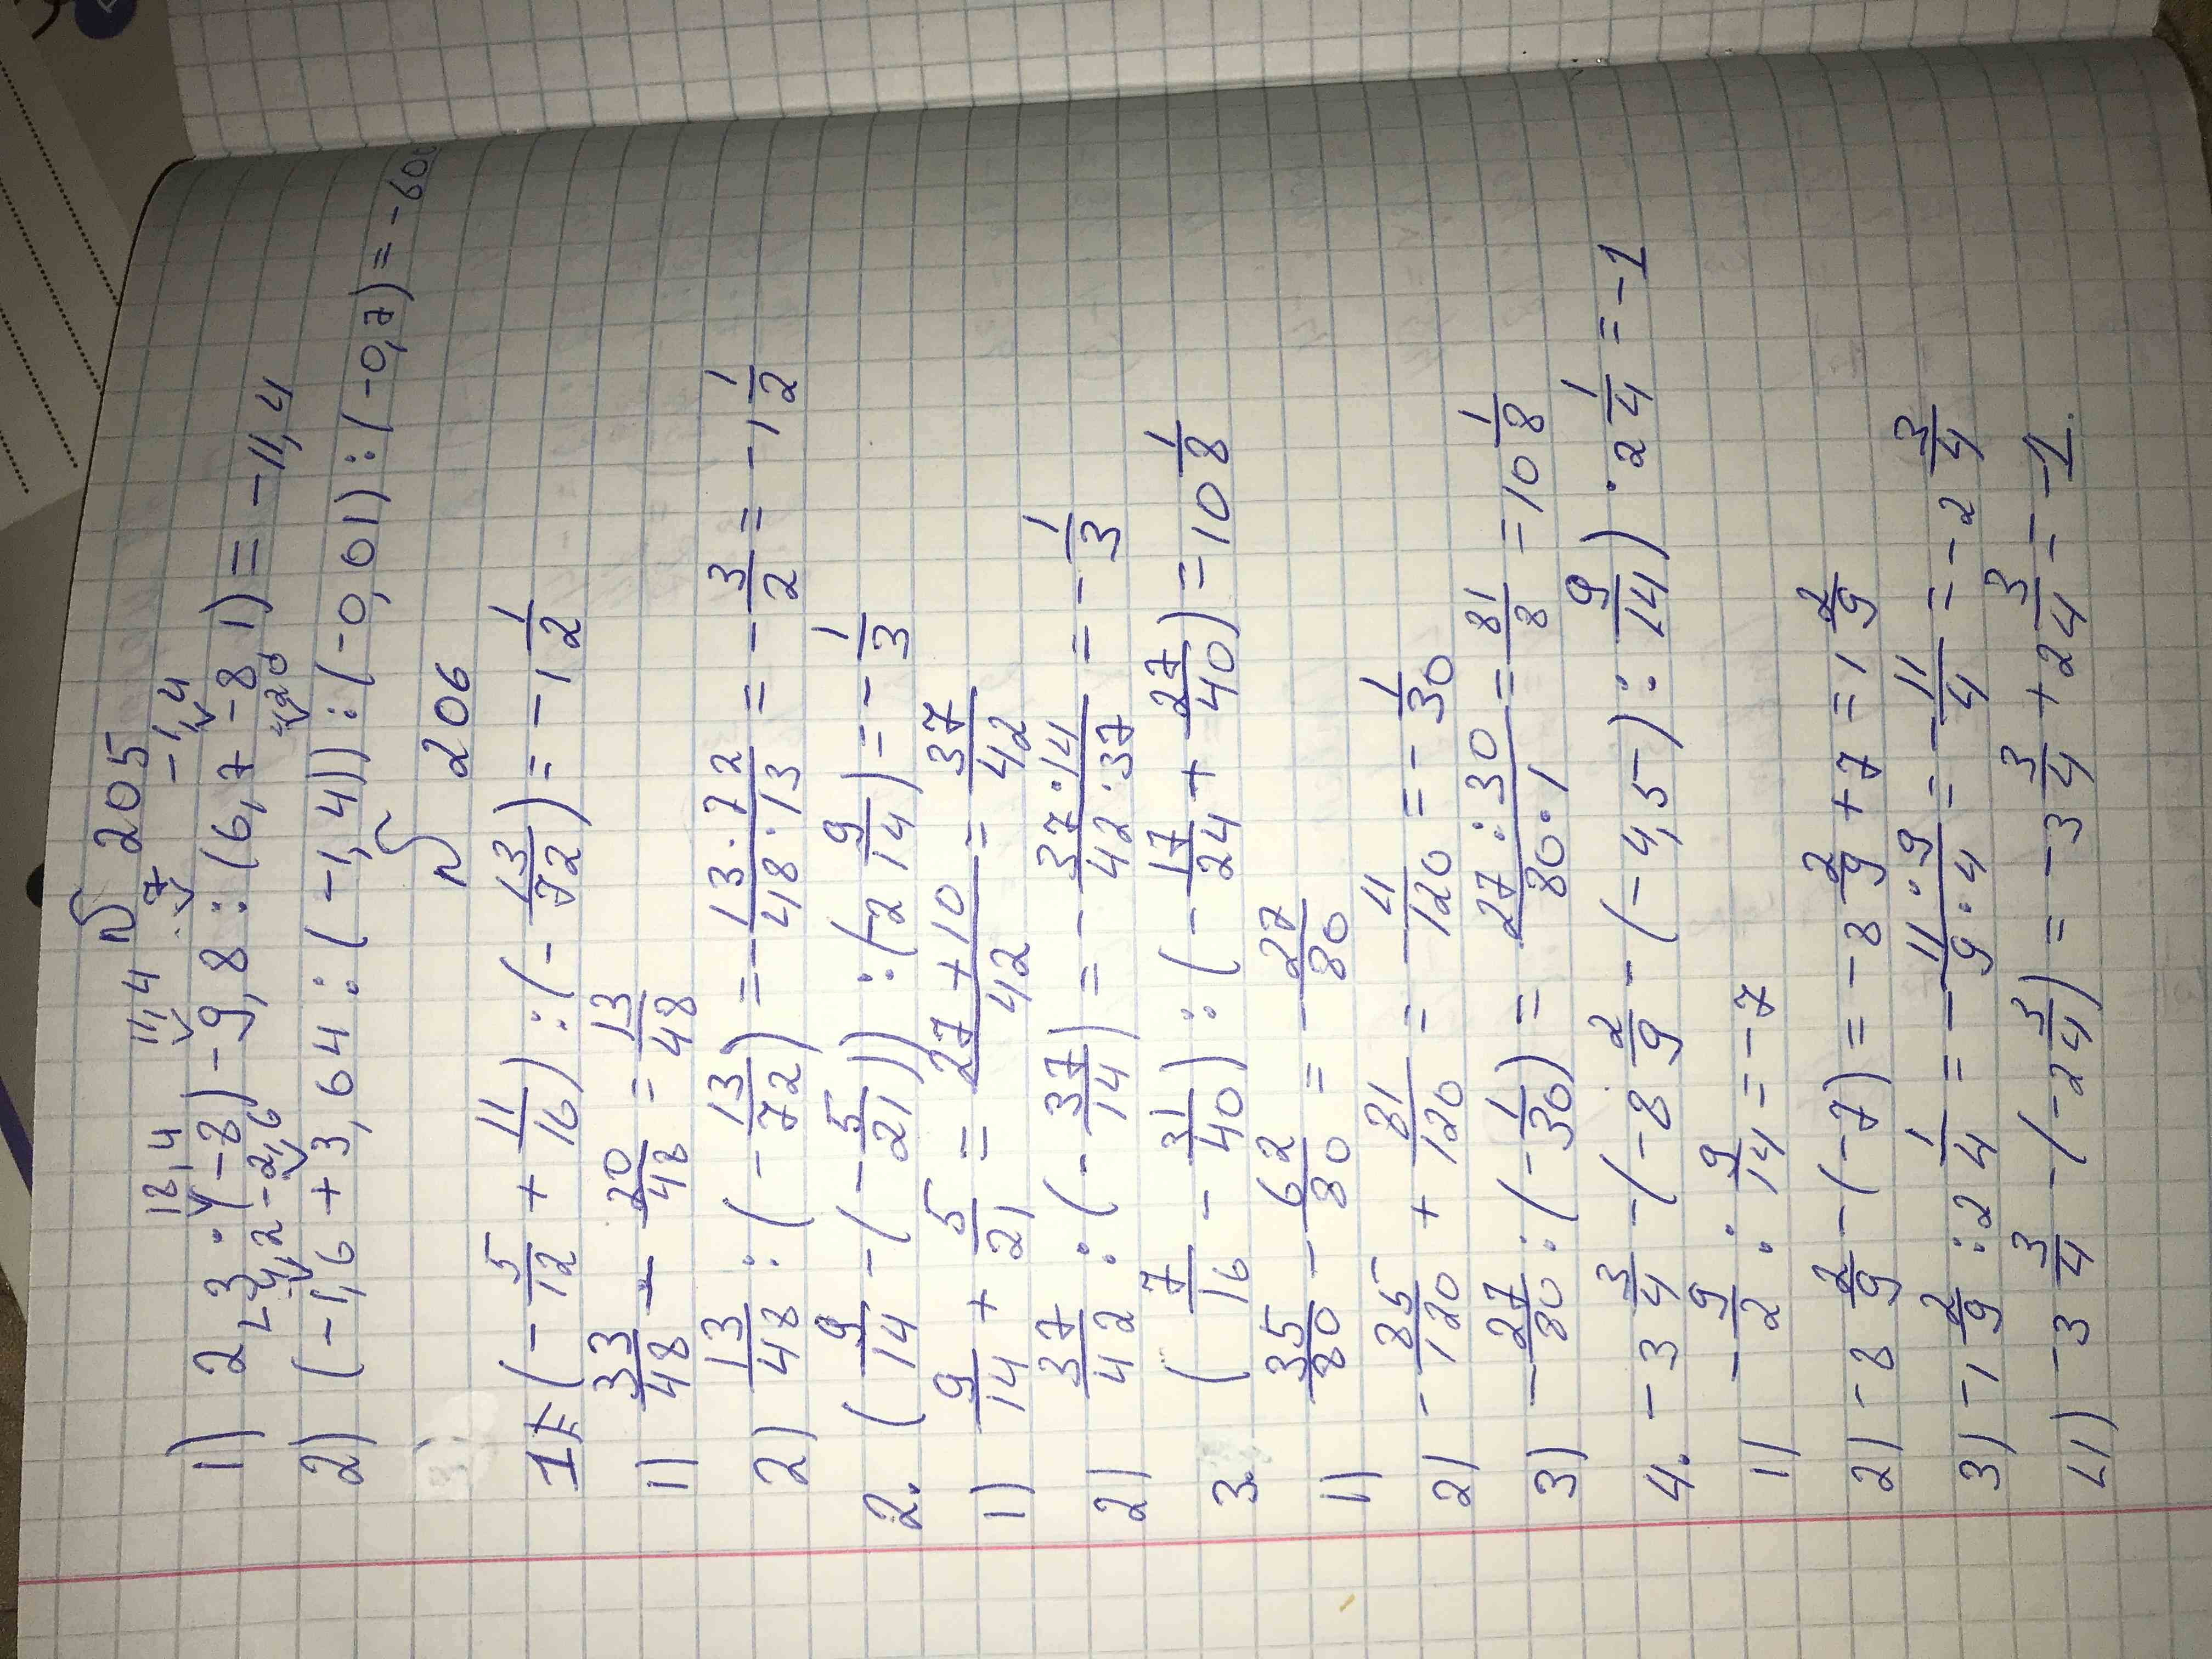 № 205
18,4 11,4 7 -1,4
1) 2,3·(-8)-9,8:(6,7-8,1)=-11,4
4,2-2,6 420
2) (-1,6+3,64:(-1,4)):(-0,01):(-0,7)=-600
№ 206
1. (-5/12+11/16):(-13/72)=-1 1/2
1) 33/48-20/48=13/48
2) 13/48:(-13/72)=-13·72/48·13=-3/2=-1 1/2
2. (9/14-(-5/21)):(2 9/14)=-1/3
1) 9/14+5/21=27+10/42=37/42
2) 37/42:(-37/14)=-37·14/42·37=-1/3
3. (7/16-31/40):(-17/24+27/40)=10 1/8
1) 35/80-62/80=-27/80
2) -85/120+81/120=-4/120=-1/30
3) -27/80:(-1/30)=27·30/80·1=81/8=10 1/8
4. -3 3/4-(-8 2/9-(-4,5):9/14)·2 1/4=-1
1) -9/2:9/14=-7
2) -8 2/9-(-7)=-8 2/9+7=1 2/9
3) -1 2/9:2 1/4=-11·9/9·4=-11/4=-2 3/4
4) -3 3/4-(-2 3/4)=-3 3/4+2 3/4=-1.